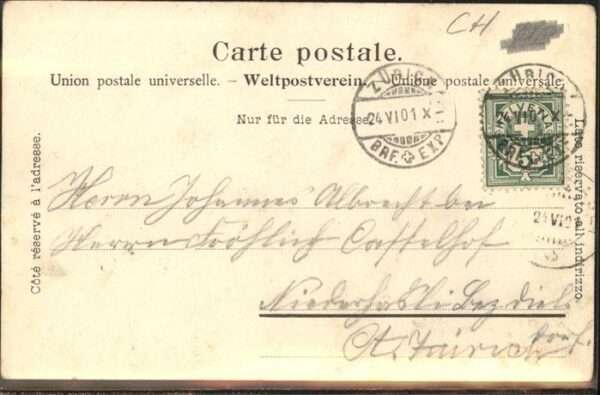 CH
Carte postale.
Union postale universelle. – Weltpostverein. – Unione postale universale.
Nur für die Adresse.
ZÜRICH
24 VI 01 X
BRF. EXP.
HELVETIA
5
24 VI 01
Côté réservé à l'adresse.
Lato riservato all'indirizzo.
Herrn Johannes Albrecht bei
Herrn Fröhlich Castelhof
Niederhasli Bez. Diels
dorf.
Ct. Zürich